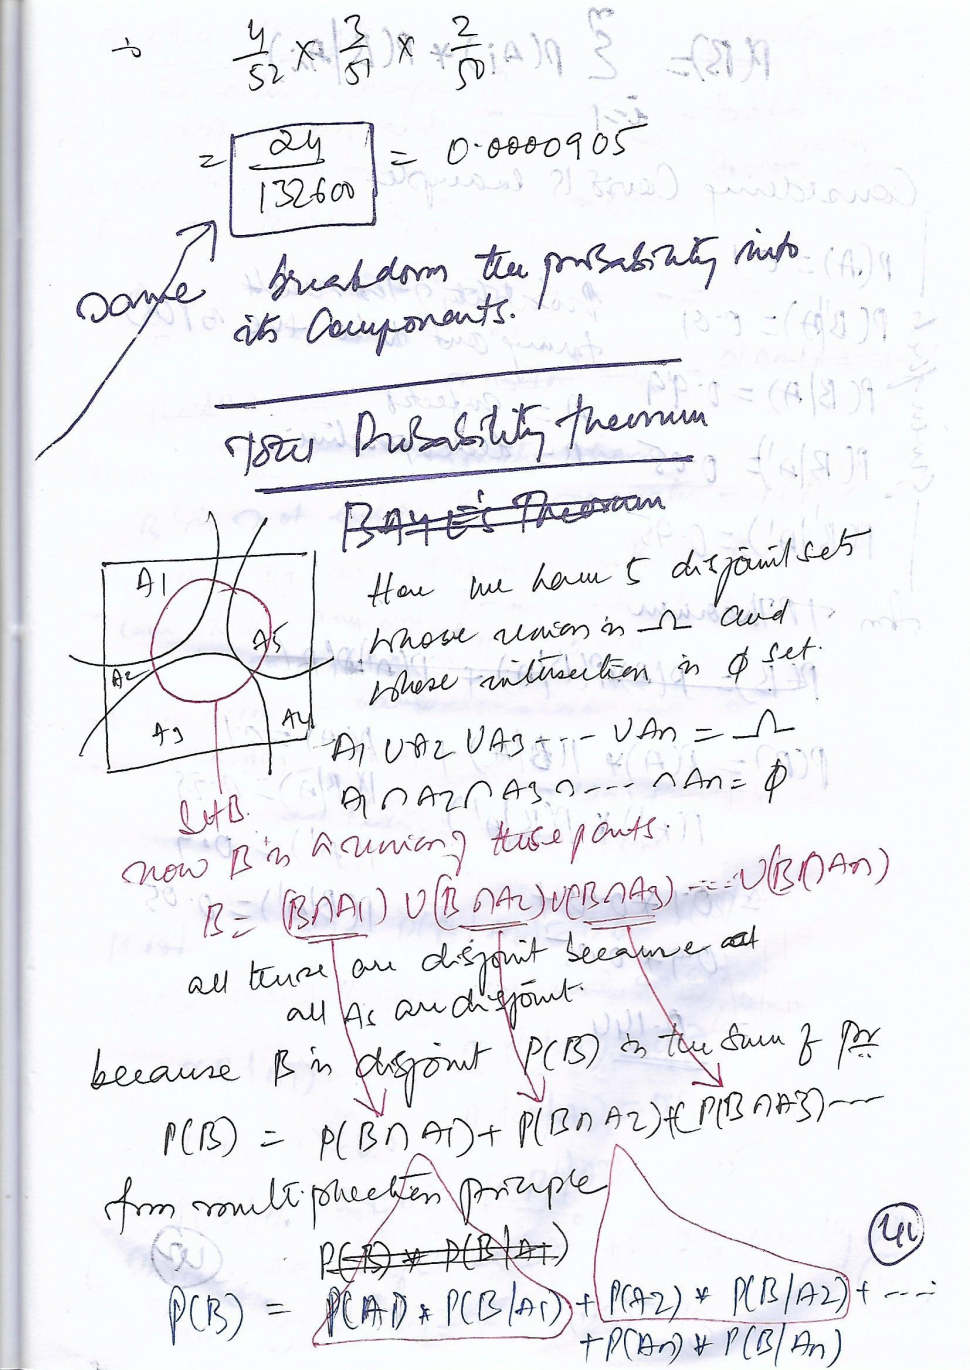 ÷ 4/52 × 3/51 × 2/50
= 24/132600 = 0.0000905
same breakdown the probability into
its Components.
Total Probability theorum
BAYE's Theorum
A1 A2 A3 A4 A5
Set B.
Here we have 5 disjoint sets
whose union is Ω and
whose intersection is ϕ set.
A1 ∪ A2 ∪ A3 ---- ∪ An = Ω
A1 ∩ A2 ∩ A3 ∩ ---- ∩ An = ϕ
now B is a union of these parts.
B = (B∩A1) ∪ (B∩A2) ∪ (B∩A3) ---- ∪ (B∩An)
all these are disjoint because
all As are disjoint.
because B is disjoint P(B) is the sum of pr
P(B) = P(B∩A1) + P(B∩A2) + P(B∩A3) ----
from multiplication principle
P(B) * P(B/A1)
P(B) = P(A1) * P(B/A1) + P(A2) * P(B/A2) + ----
+ P(An) * P(B/An)
41